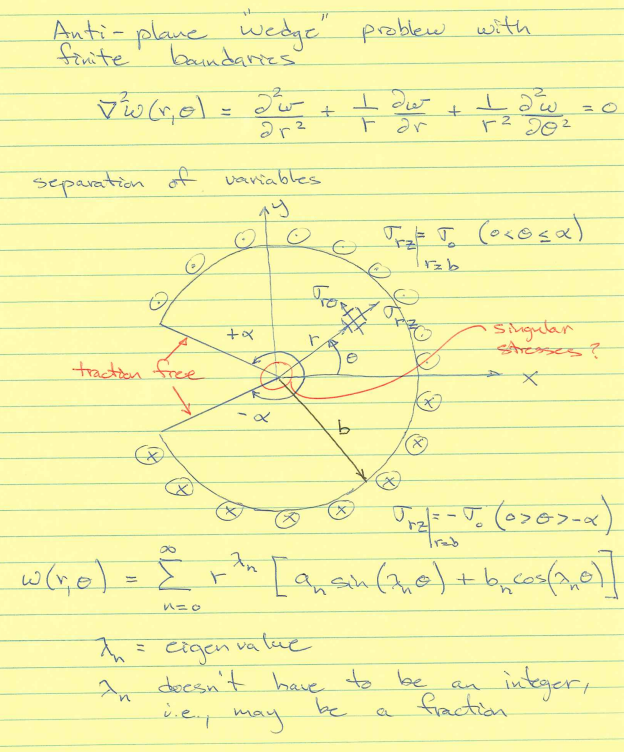 Anti-plane "wedge" problem with
finite boundaries
∇²w(r,θ) = ∂²w/∂r² + 1/r ∂w/∂r + 1/r² ∂²w/∂θ² = 0
separation of variables
y
σrz|r=b = σ₀ (0<θ≤α)
σrθ
σrz
+α
r
θ
singular
stresses?
traction free
x
-α
b
σrz|r=b = -σ₀ (0>θ>-α)
w(r,θ) = ∑ n=0 ∞ r^λn [an sin(λnθ) + bn cos(λnθ)]
λn = eigenvalue
λn doesn't have to be an integer,
i.e., may be a fraction